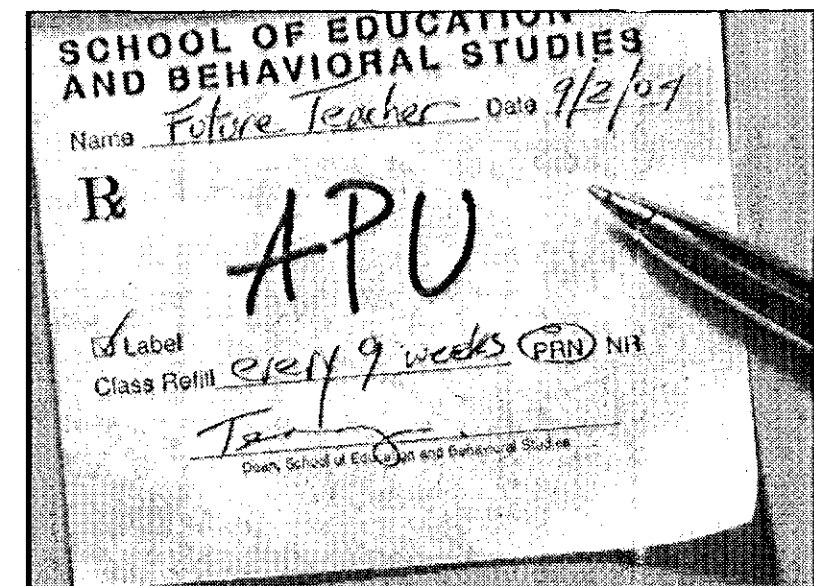 SCHOOL OF EDUCATION
AND BEHAVIORAL STUDIES
Name Future Teacher Date 9/2/04
℞
APU
Label
Class Refill every 9 weeks PRN NR
Dean, School of Education and Behavioral Studies